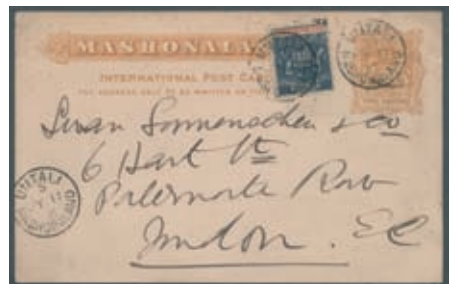 MASHONALA
INTERNATIONAL POST CA
THE ADDRESS ONLY TO BE WRITTEN ON THE
Swan Sonnenschein & Co
6 Hart St
Paternoster Row
London. EC
UMTALI
MASHONALAND